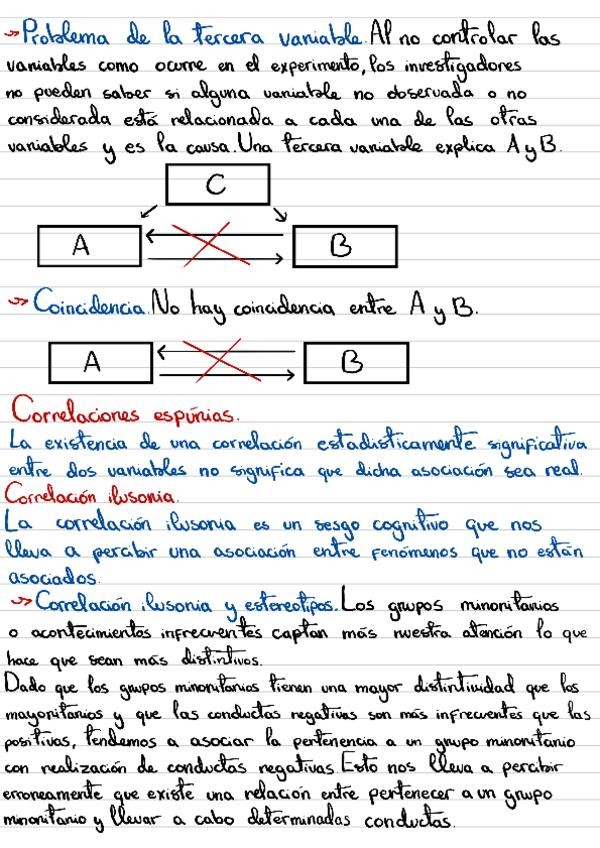 Problema de la tercera variable. Al no controlar las
variables como ocurre en el experimento, los investigadores
no pueden saber si alguna variable no observada o no
considerada está relacionada a cada una de las otras
variables y es la causa. Una tercera variable explica A y B.
C
A B
Coincidencia. No hay coincidencia entre A y B.
A B
Correlaciones espúrias.
La existencia de una correlación estadísticamente significativa
entre dos variables no significa que dicha asociación sea real.
Correlación ilusoria.
La correlación ilusoria es un sesgo cognitivo que nos
lleva a percibir una asociación entre fenómenos que no están
asociados.
Correlación ilusoria y estereotipos. Los grupos minoritarios
o acontecimientos infrecuentes captan más nuestra atención lo que
hace que sean más distintivos.
Dado que los grupos minoritarios tienen una mayor distintividad que los
mayoritarios y que las conductas negativas son más infrecuentes que las
positivas, tendemos a asociar la pertenencia a un grupo minoritario
con realización de conductas negativas. Esto nos lleva a percibir
erroneamente que existe una relación entre pertenecer a un grupo
minoritario y llevar a cabo determinadas conductas.